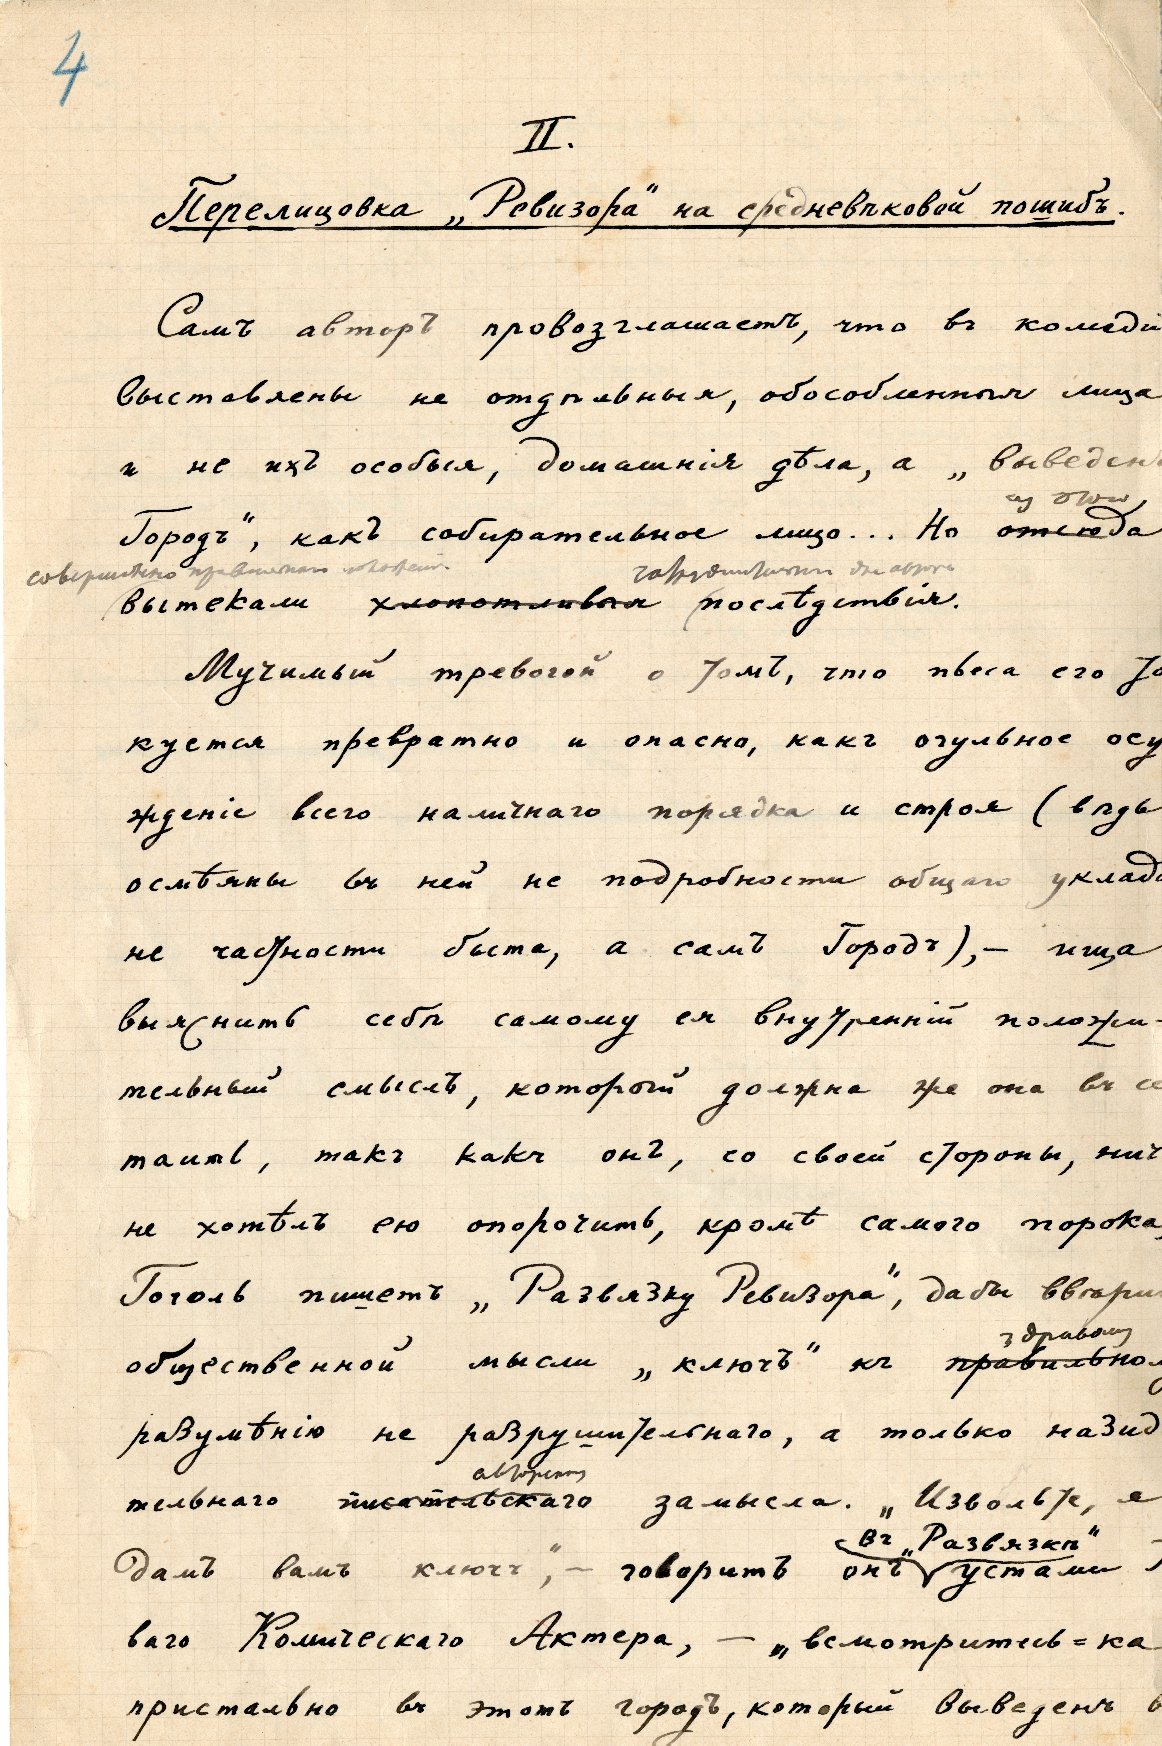 4
II.
Перелицовка „Ревизора“ на средневѣковой пошибъ.
Самъ авторъ провозглашаетъ, что въ комеді
выставлены не отдѣльныя, обособленныя лица
и не ихъ особыя, домашнія дѣла, а „выведен
изъ этого
Городъ“, какъ собирательное лицо... Но отсюда
совершенно правильнаго
вытекали хлопотливыя послѣдствія.
Мучимый тревогой о томъ, что пьеса его то
куется превратно и опасно, какъ огульное осу
жденіе всего наличнаго порядка и строя (вѣдь
осмѣяны въ ней не подробности общаго уклада
не частности быта, а самъ Городъ),— ища
выяснить себѣ самому ея внутренній положи-
тельный смыслъ, который должна же она въ се
таить, такъ какъ онъ, со своей стороны, нич
не хотѣлъ ею опорочить, кромѣ самого порока,
Гоголь пишетъ „Развязку Ревизора“, дабы ввѣри
здравому
общественной мысли „ключъ“ къ правильном
разумѣнію не разрушительнаго, а только назид
авторскаго
тельнаго писательскаго замысла. „Извольте, я
въ „Развязкѣ“
дамъ вамъ ключъ“,— говоритъ онъ устами
ваго Комическаго Актера, — „всмотритесь=ка
пристально въ этотъ городъ, который выведенъ в